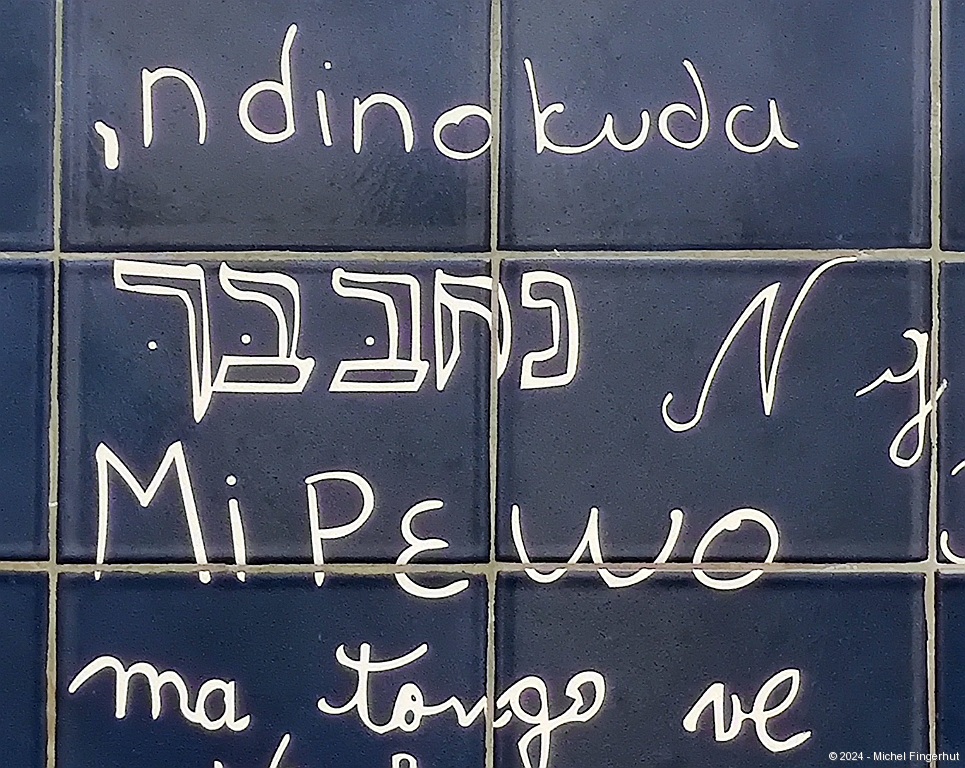 ,ndinokuda
נחבבך N y
Mi PE wo
ma tongo ve
© 2024 - Michel Fingerhut